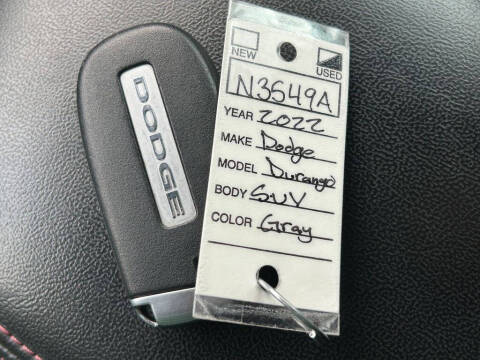 DODGE
NEW USED
N3549A
YEAR 2022
MAKE Dodge
MODEL Durango
BODY SUV
COLOR Gray